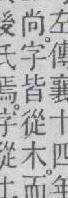 左傳襄十四年
尚字皆從木而
後氏焉字從